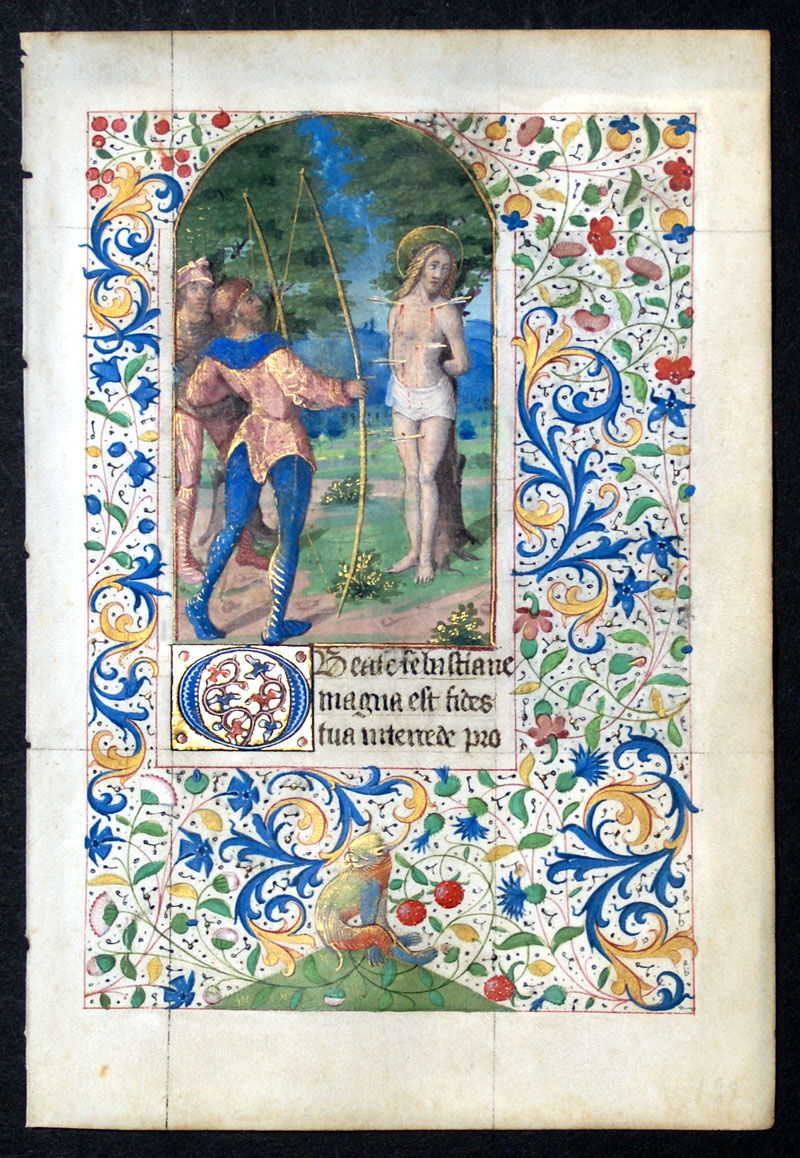 O Beate sebastiane
magna est fides
tua intercede pro